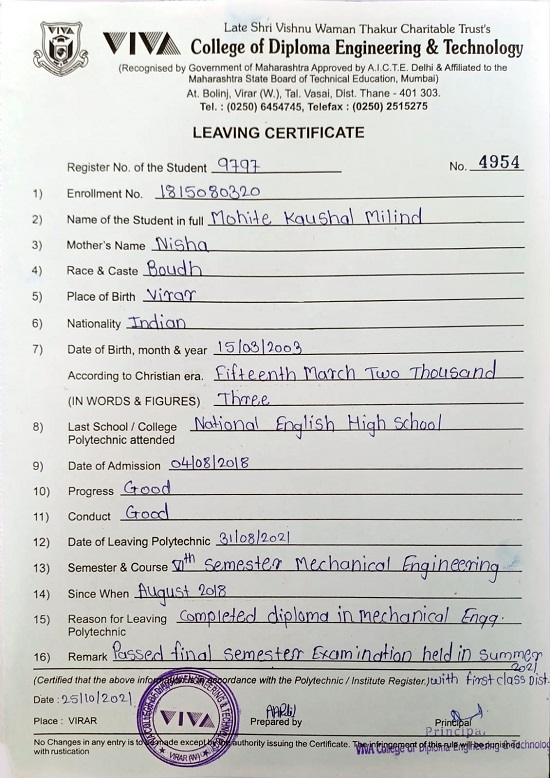 Late Shri Vishnu Waman Thakur Charitable Trust's
VIVA College of Diploma Engineering & Technology
(Recognised by Government of Maharashtra Approved by A.I.C.T.E. Delhi & Affiliated to the
Maharashtra State Board of Technical Education, Mumbai)
At. Bolinj, Virar (W.), Tal. Vasai, Dist. Thane - 401 303.
Tel. : (0250) 6454745, Telefax : (0250) 2515275
LEAVING CERTIFICATE
Register No. of the Student 9797 No. 4954
1) Enrollment No. 1815080320
2) Name of the Student in full Mohite Kaushal Milind
3) Mother's Name Nisha
4) Race & Caste Boudh
5) Place of Birth Virar
6) Nationality Indian
7) Date of Birth, month & year 15/03/2003
According to Christian era. Fifteenth March Two Thousand
(IN WORDS & FIGURES) Three
8) Last School / College National English High School
Polytechnic attended
9) Date of Admission 04/08/2018
10) Progress Good
11) Conduct Good
12) Date of Leaving Polytechnic 31/08/2021
13) Semester & Course VIth Semester Mechanical Engineering
14) Since When August 2018
15) Reason for Leaving Completed diploma in mechanical Engg.
Polytechnic
16) Remark Passed final semester Examination held in summer
2021
(Certified that the above in accordance with the Polytechnic / Institute Register.) with first class Dist.
Date : 25/10/2021
VIVA
VIRAR (W)
Place : VIRAR Prepared by Principal
Principal
No Changes in any entry is to be made except by the authority issuing the Certificate. The infringement of this rule will be punished
with rustication
VIVA College of Diploma Engineering & Technology